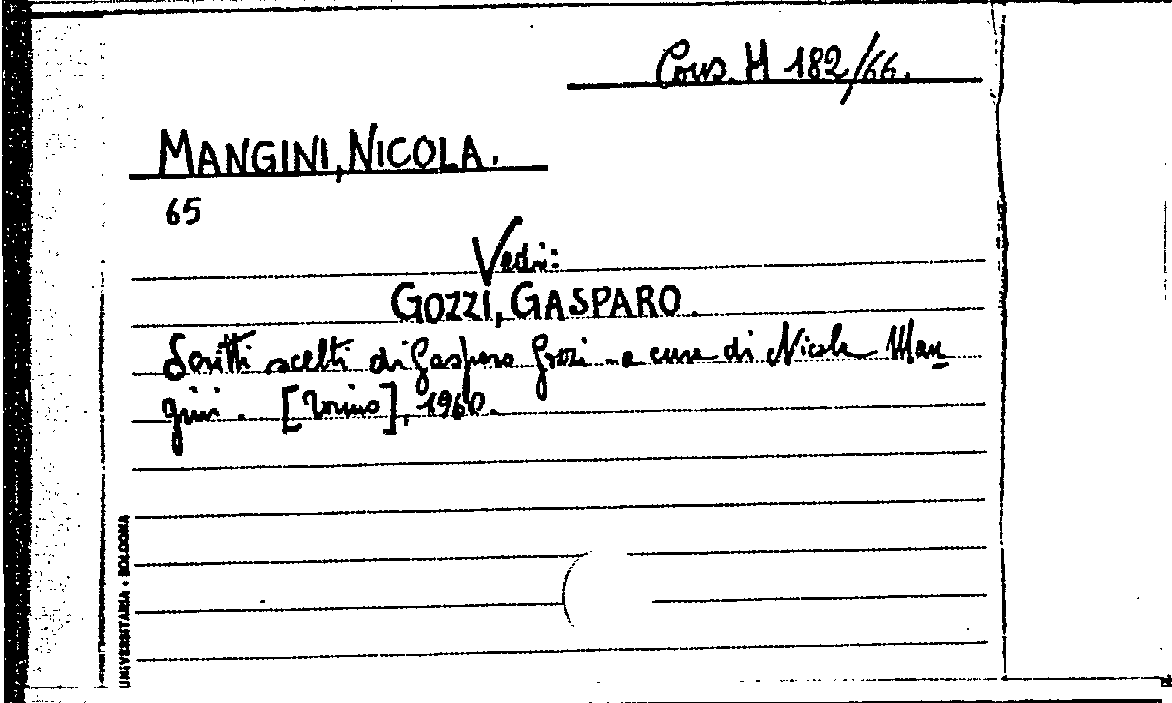 Cons. M 182/66.
MANGINI, NICOLA.
65
Vedi:
GOZZI, GASPARO.
Scritti scelti di Gasparo Gozzi - a cura di Nicola Man
gini. [Torino], 1960.
UNIVERSITARIA • BOLOGNA